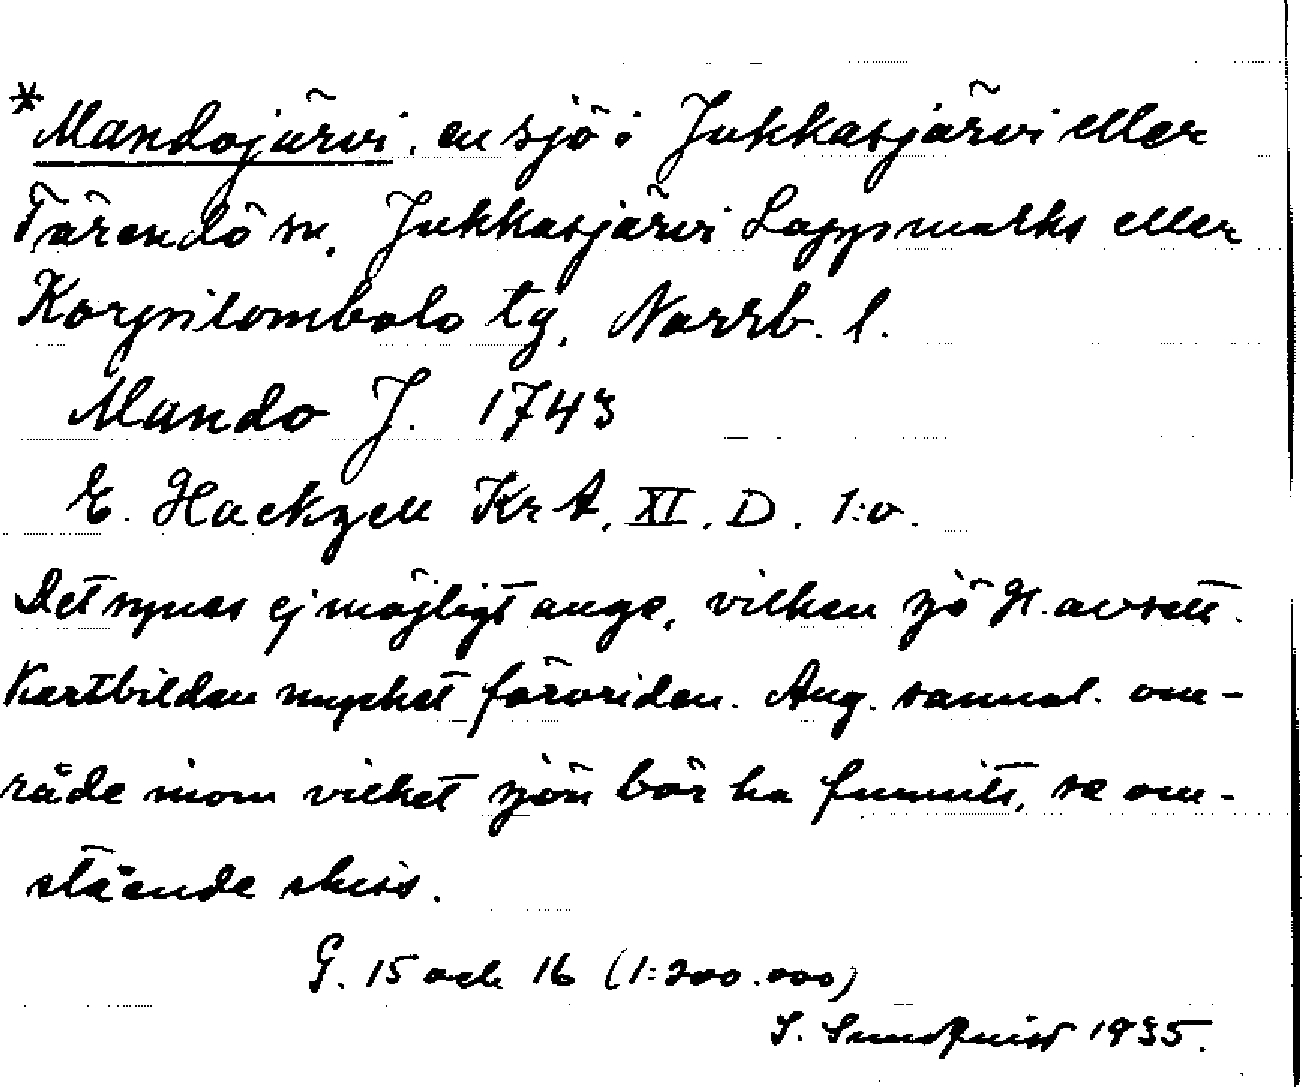 *Mandojärvi, en sjö i Jukkasjärvi eller
Tärendö sn, Jukkasjärvi Lappmarks eller
Korpilombolo tg, Norrb. l.
Mando J. 1743
E. Hackzell Krt A. XI. D. 1:o.
Det synes ej möjligt ange, vilken sjö H. avsett.
Kartbilden mycket förvriden. Ang. sannol. om-
råde inom vilket sjön bör ha funnits, se om-
stående skiss.
G. 15 och 16 (1:200.000)
S. Sundqvist 1935.